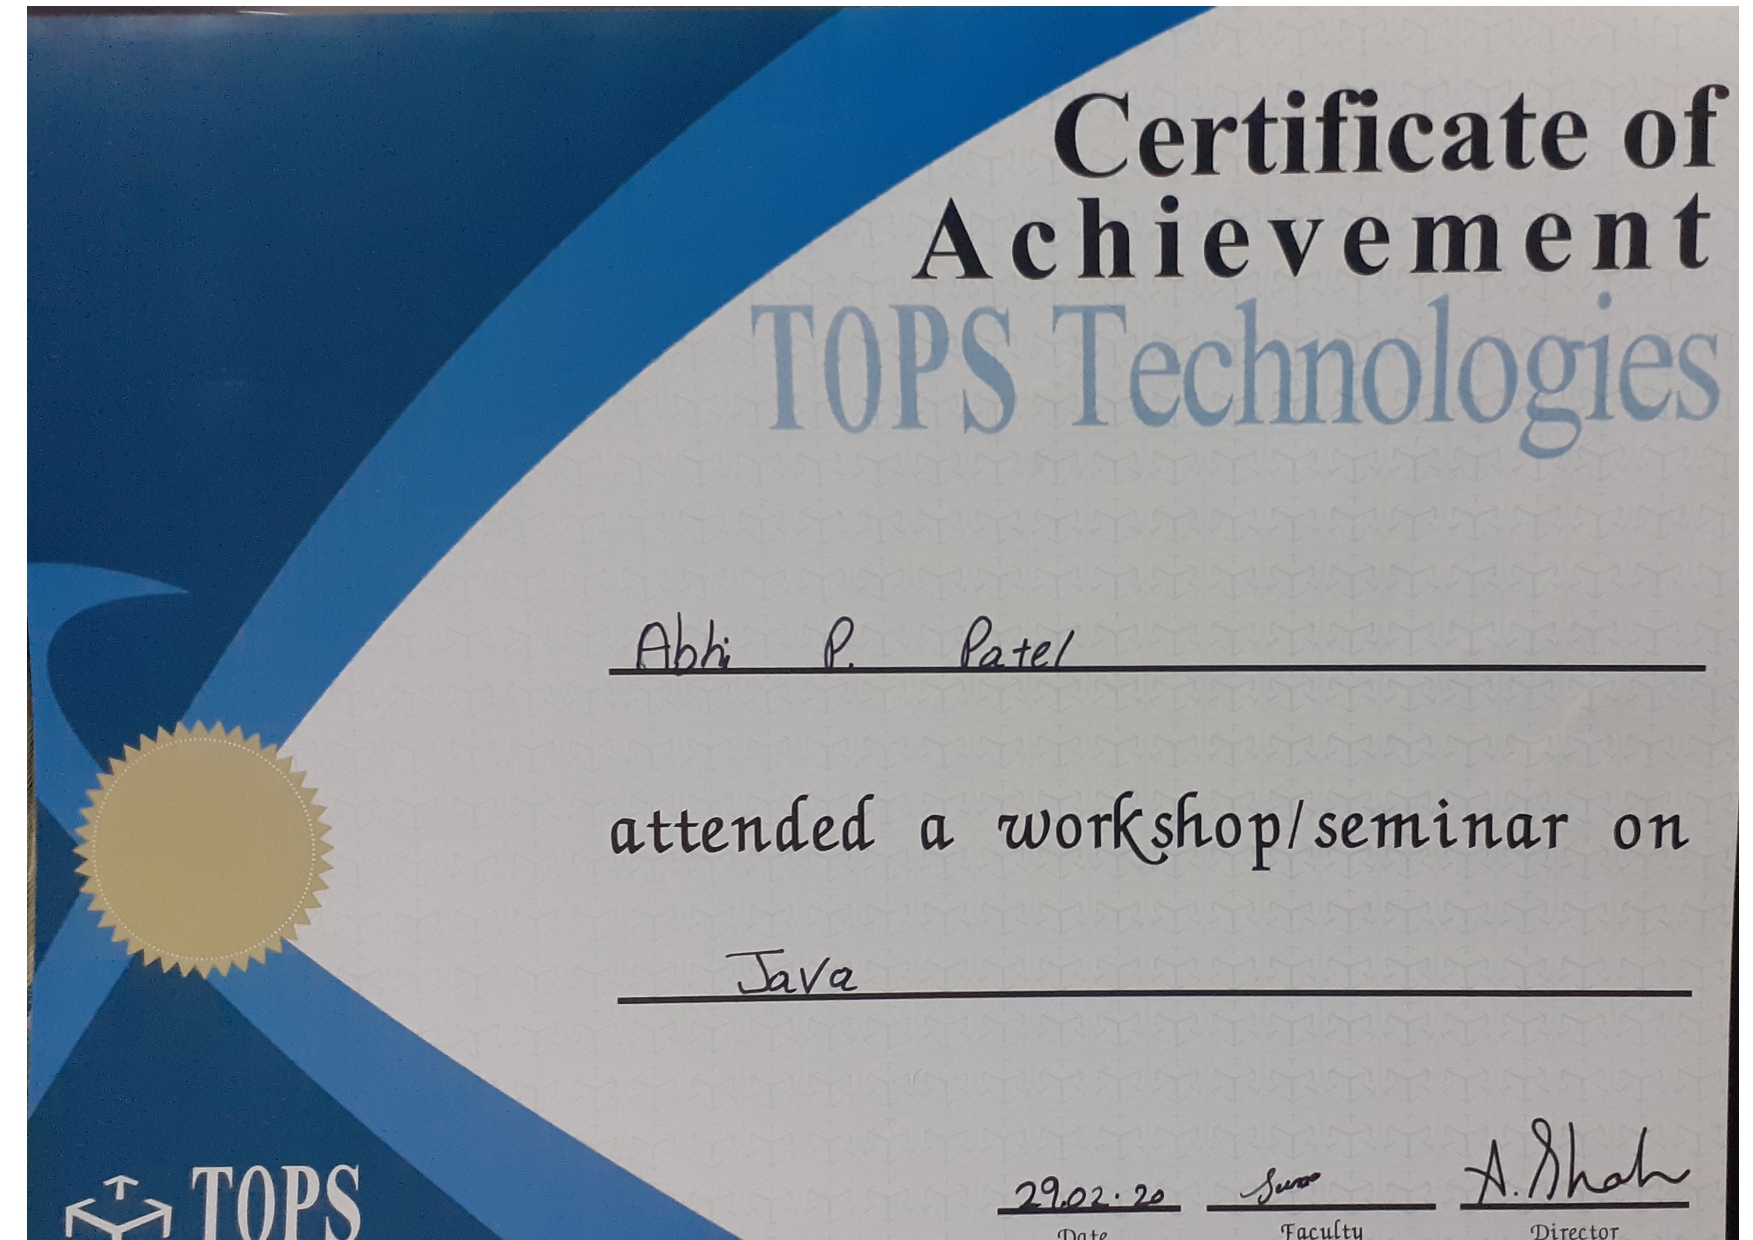 Certificate of
Achievement
TOPS Technologies
Abhi P. Patel
attended a workshop/seminar on
Java
TOPS
29.02.20 A. Shah
Date Faculty Director